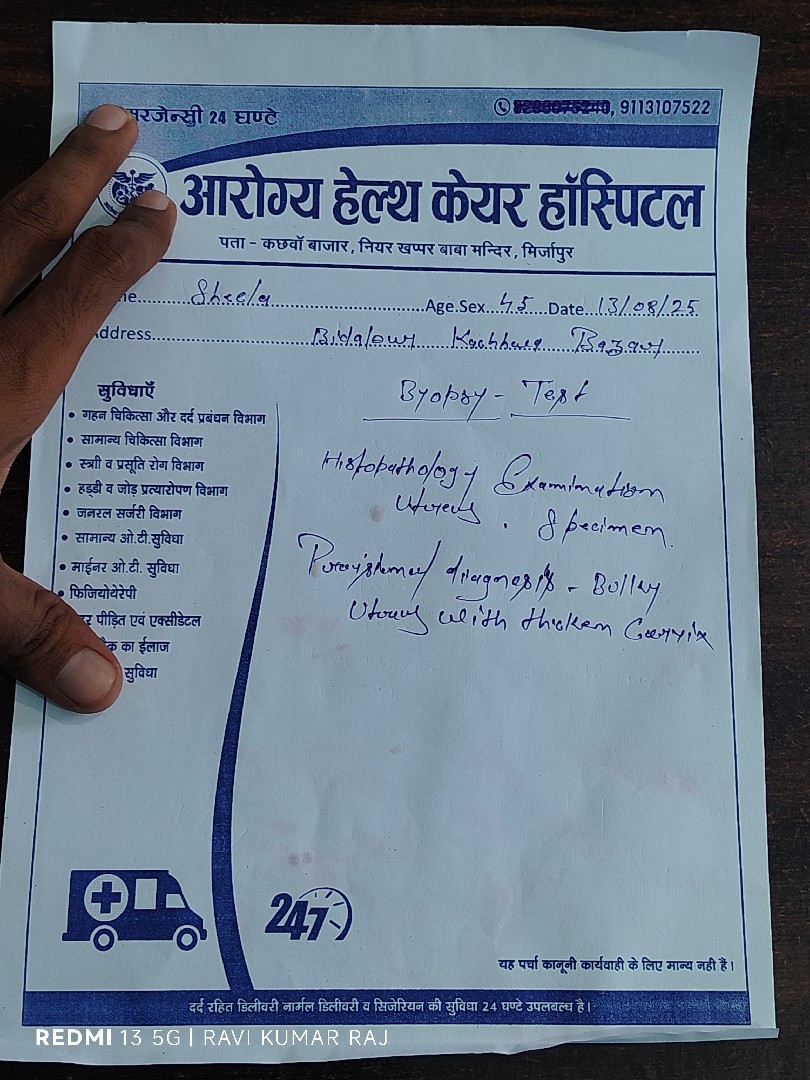 मरजेन्सी 24 घण्टे
, 9113107522
आरोग्य हेल्थ केयर हॉस्पिटल
पता - कछवाँ बाजार, नियर खप्पर बाबा मन्दिर, मिर्जापुर
Sheela Age.Sex 45 Date 13/08/25
Address Bidapur Kachhwa Bazar
Byopsy - Test
Histopathology Examination
Uterus. Specimen.
diagnosis - Bulky
Uterus with thicken Cervix
सुविधाएँ
• गहन चिकित्सा और दर्द प्रबंधन विभाग
• सामान्य चिकित्सा विभाग
• स्त्री व प्रसूति रोग विभाग
• हड्डी व जोड़ प्रत्यारोपण विभाग
• जनरल सर्जरी विभाग
• सामान्य ओ.टी.सुविधा
• माईनर ओ.टी. सुविधा
• फिजियोथेरेपी
पीड़ित एवं एक्सीडेटल
का ईलाज
सुविधा
24x7
यह पर्चा कानूनी कार्यवाही के लिए मान्य नही हैं।
दर्द रहित डिलीवरी नार्मल डिलीवरी व सिजेरियन की सुविधा 24 घण्टे उपलबल्ध है।
REDMI 13 5G | RAVI KUMAR RAJ